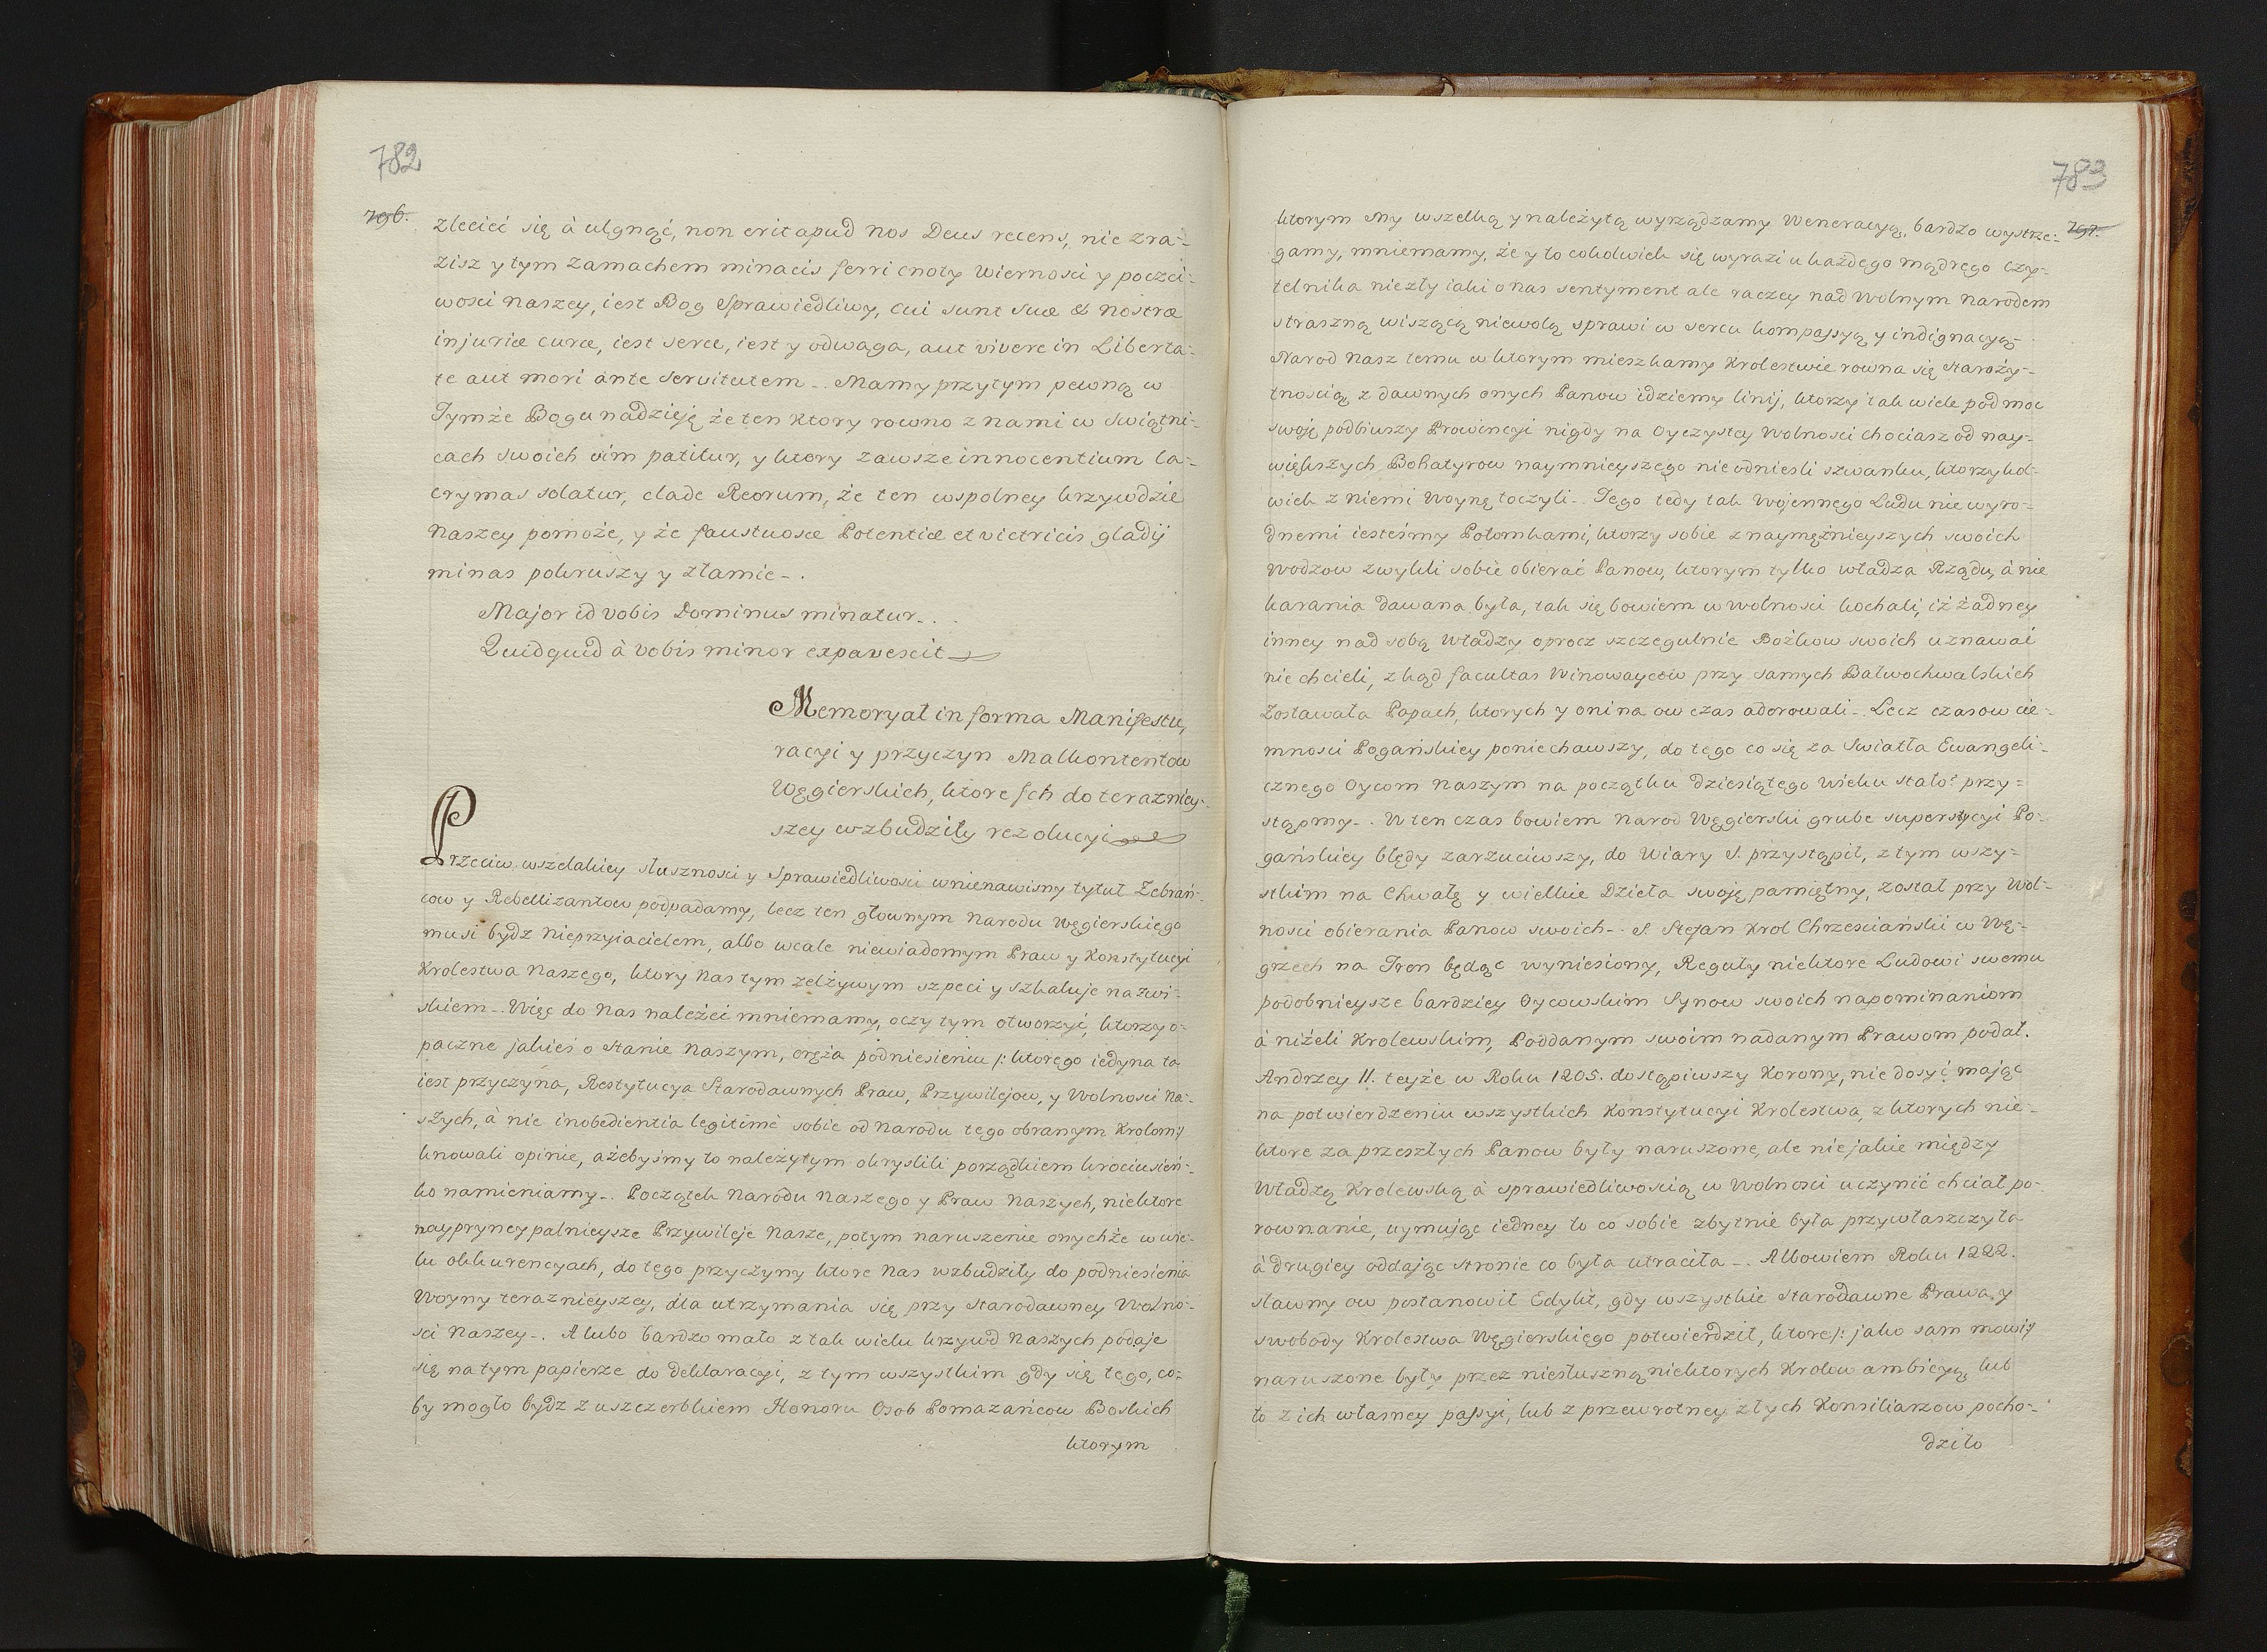 782
796.
zlecieć się à ulgnąć, non erit apud nos Deus recens, nie zra-
zisz y tym zamachem minacis ferri cnoty wierności y poczci-
wości naszey, iest Bog Sprawiedliwy, cui sunt suæ & nostræ
injuriæ curæ, iest serce, iest y odwaga, aut vivere in Liberta-
te aut mori ante servitutem -. Mamy przytym pewną w
Tymże Bogu nadzieję że ten ktory rowno z nami w swiątni-
cach swoich vim patitur, y ktory zawsze innocentium la-
crymas solatur, clade Reorum, że ten wspolney krzywdzie
naszey pomoże, y że fastuosæ Potentiæ et victricis gladij
minas pokruszy y złamie -.
Major id vobis Dominus minatur...
Quidquid à vobis minor expavescit
Memoryał in forma Manifestu,
racyi y przyczyn Malkontentow
Węgierskich, ktore Ich do terazniey-
szey wzbudziły rezolucyi
Przeciw wszelakiey słuszności y Sprawiedliwości w nienawisny tytuł Zebrań-
cow y Rebellizantow podpadamy, lecz ten głownym narodu Węgierskiego
musi bydz nieprzyiacielem, albo wcale niewiadomym Praw y Konstytucyi
Krolestwa Naszego, ktory nas tym zelżywym szpeci y szkaluje nazwi-
skiem -. Więc do nas należeć mniemamy, oczy tym otworzyć, ktorzy o-
paczne jakieś o stanie naszym, oręża podniesieniu /: ktorego iedyna ta
iest przyczyna, Restytucya Starodawnych Praw, Przywilejow, y Wolności Na-
szych, à nie inobedientia legitimè sobie od narodu tego obranym Krolom :/
knowali opinie, ażebyśmy to należytym okryslili porządkiem krociusień-
ko namieniamy -. Początek Narodu Naszego y Praw Naszych, niektore
naypryncypalnieysze Przywileje Nasze, potym naruszenie onychże w wie-
lu okkurencyach, do tego przyczyny ktore nas wzbudziły do podniesienia
Woyny teraznieyszey, dla utrzymania się przy Starodawney Wolno-
ści Naszey -. A lubo bardzo mało z tak wielu krzywd Naszych podaje
się na tym papierze do deklaracyi, z tym wszystkim gdy się tego, co-
by mogło bydz z uszczerbkiem Honoru Osob Pomazańcow Boskich
ktorym
783
797.
ktorym my wszelką y należytą wyrządzamy Weneracyą, bardzo wystrze-
gamy, mniemamy, że y to cokolwiek się wyrazi u każdego mądrego czy-
telnika niezły iaki o nas sentyment ale raczey nad Wolnym narodem
straszną wiszącą niewolą sprawi w sercu kompassyą y indignacyą -
Narod Nasz temu w ktorym mieszkamy Krolestwie rowna się Staroży-
tnością, z dawnych onych Panow idziemy linij, ktorzy tak wiele pod moc
swoję podbiwszy Prowincyi nigdy na Oyczystey Wolności chociasz od nay-
większych Bohatyrow naymnieyszego nie odnieśli szwanku, ktorzykol-
wiek z niemi Woynę toczyli -. Tego tedy tak Wojennego Ludu nie wyro-
dnemi iesteśmy Potomkami, ktorzy sobie z naymężnieyszych swoich
Wodzow zwykli sobie obierać Panow, ktorym tylko władza Rządu, à nie
karania dawana była, tak się bowiem w wolności kochali, iż żadney
inney nad sobą Władzy oprocz szczegulnie Bożkow swoich uznawać
nie chcieli, zkąd facultas Winowaycow przy samych Bałwochwalskich
Zostawała Popach, ktorych y oni na ow czas adorowali -. Lecz czasow cie-
mności Pogańskiey poniechawszy, do tego co się za Swiatła Ewangeli-
cznego Oycom Naszym na początku dziesiątego wieku stało, przy-
stąpmy -. W ten czas bowiem narod Węgierski grube superstycyi Po-
gańskiey błędy zarzuciwszy, do Wiary S. przystąpił, z tym wszy-
stkim na Chwałę y wielkie Dzieła swoję pamiętny, został przy Wol-
ności obierania Panow swoich -. S. Stefan Krol Chrzesciański w Wę-
grzech na Tron będąc wyniesiony, Reguły niektore Ludowi swemu
podobnieysze bardziey Oycowskim Synow swoich napominaniom
à niżeli Krolewskim, Poddanym swoim nadanym Prawom podał.
Andrzey II. teyże w Roku 1205. dostąpiwszy Korony, nie dosyć mając
na potwierdzeniu wszystkich Konstytucyi Krolestwa, z ktorych nie-
ktore za przeszłych Panow były naruszone, ale niejakie między
Władzą Krolewską à sprawiedliwością w Wolności uczynić chciał po-
rownanie, uymując iedney to co sobie zbytnie była przywłaszczyła
à drugiey oddając stronie co była utraciła -. Albowiem Roku 1222.
sławny ow postanowił Edykt, gdy wszystkie Starodawne Prawa, y
swobody Krolestwa Węgierskiego potwierdził, ktore /: jako sam mowi :/
naruszone były przez niesłuszną niektorych Krolow ambicyą, lub
to z ich własney passyi, lub z przewrotney złych Konsiliarzow pocho-
dziło